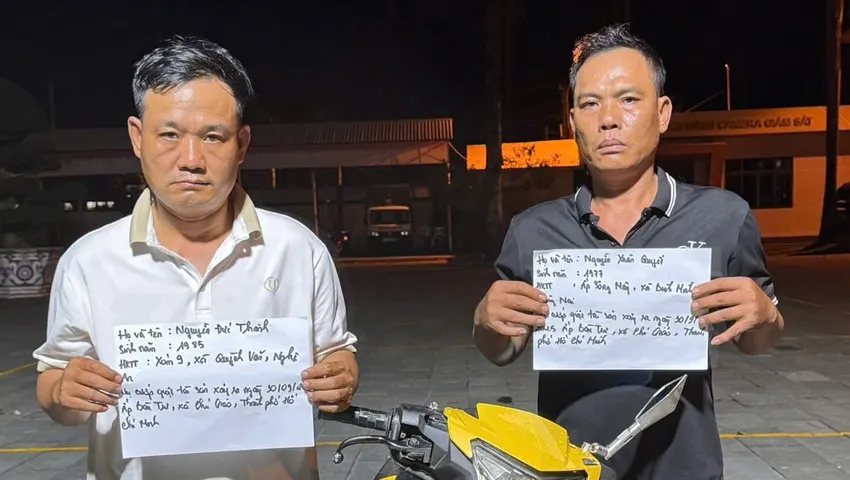 CAMERA GIÁM SÁT
Họ và tên : Nguyễn Đức Thanh
Sinh năm : 1985
HKTT : Xóm 9, xã Quỳnh Văn, Nghệ
An
Vụ cướp giật tài sản xảy ra ngày 30/09/2
Ấp Bàu Tư, xã Phú Giáo, Thành phố Hồ
Chí Minh
Họ và tên : Nguyễn Xuân Quyết
Sinh năm : 1977
HKTT : Ấp Sông Mây, xã Bình Minh
Nai
cướp giật tài sản xảy ra ngày 30/9/
Ấp Bàu Tư, xã Phú Giáo, Thành
phố Hồ Chí Minh